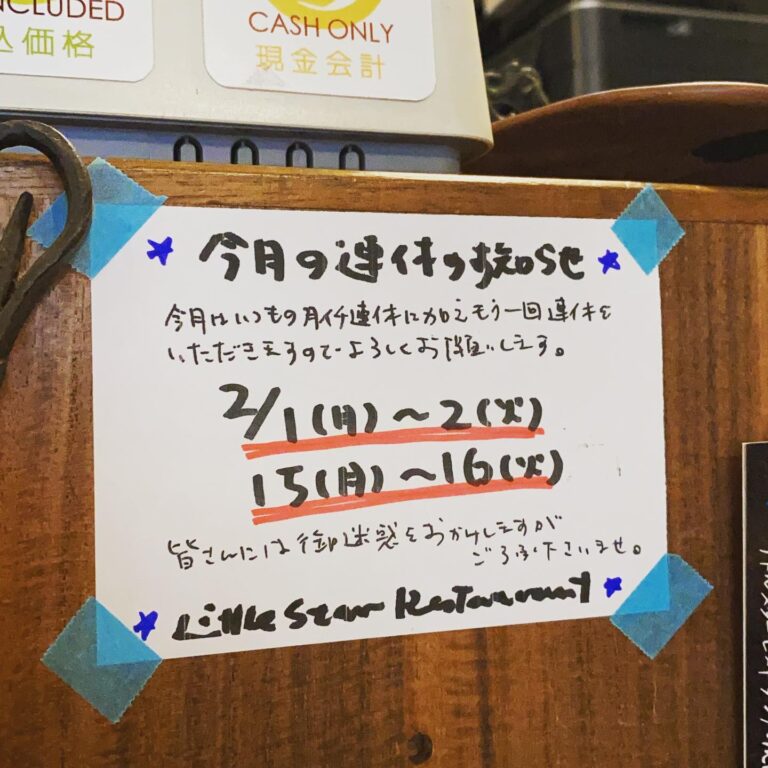 NCLUDED
込価格
CASH ONLY
現金会計
今月の連休のお知らせ
今月はいつもの月イチ連休に加えもう一回連休を
いただきますのでよろしくお願いします。
2/1(月)〜2(火)
15(月)〜16(火)
皆さんには御迷惑をおかけしますが
ご了承下さいませ。
Little Star Restaurant